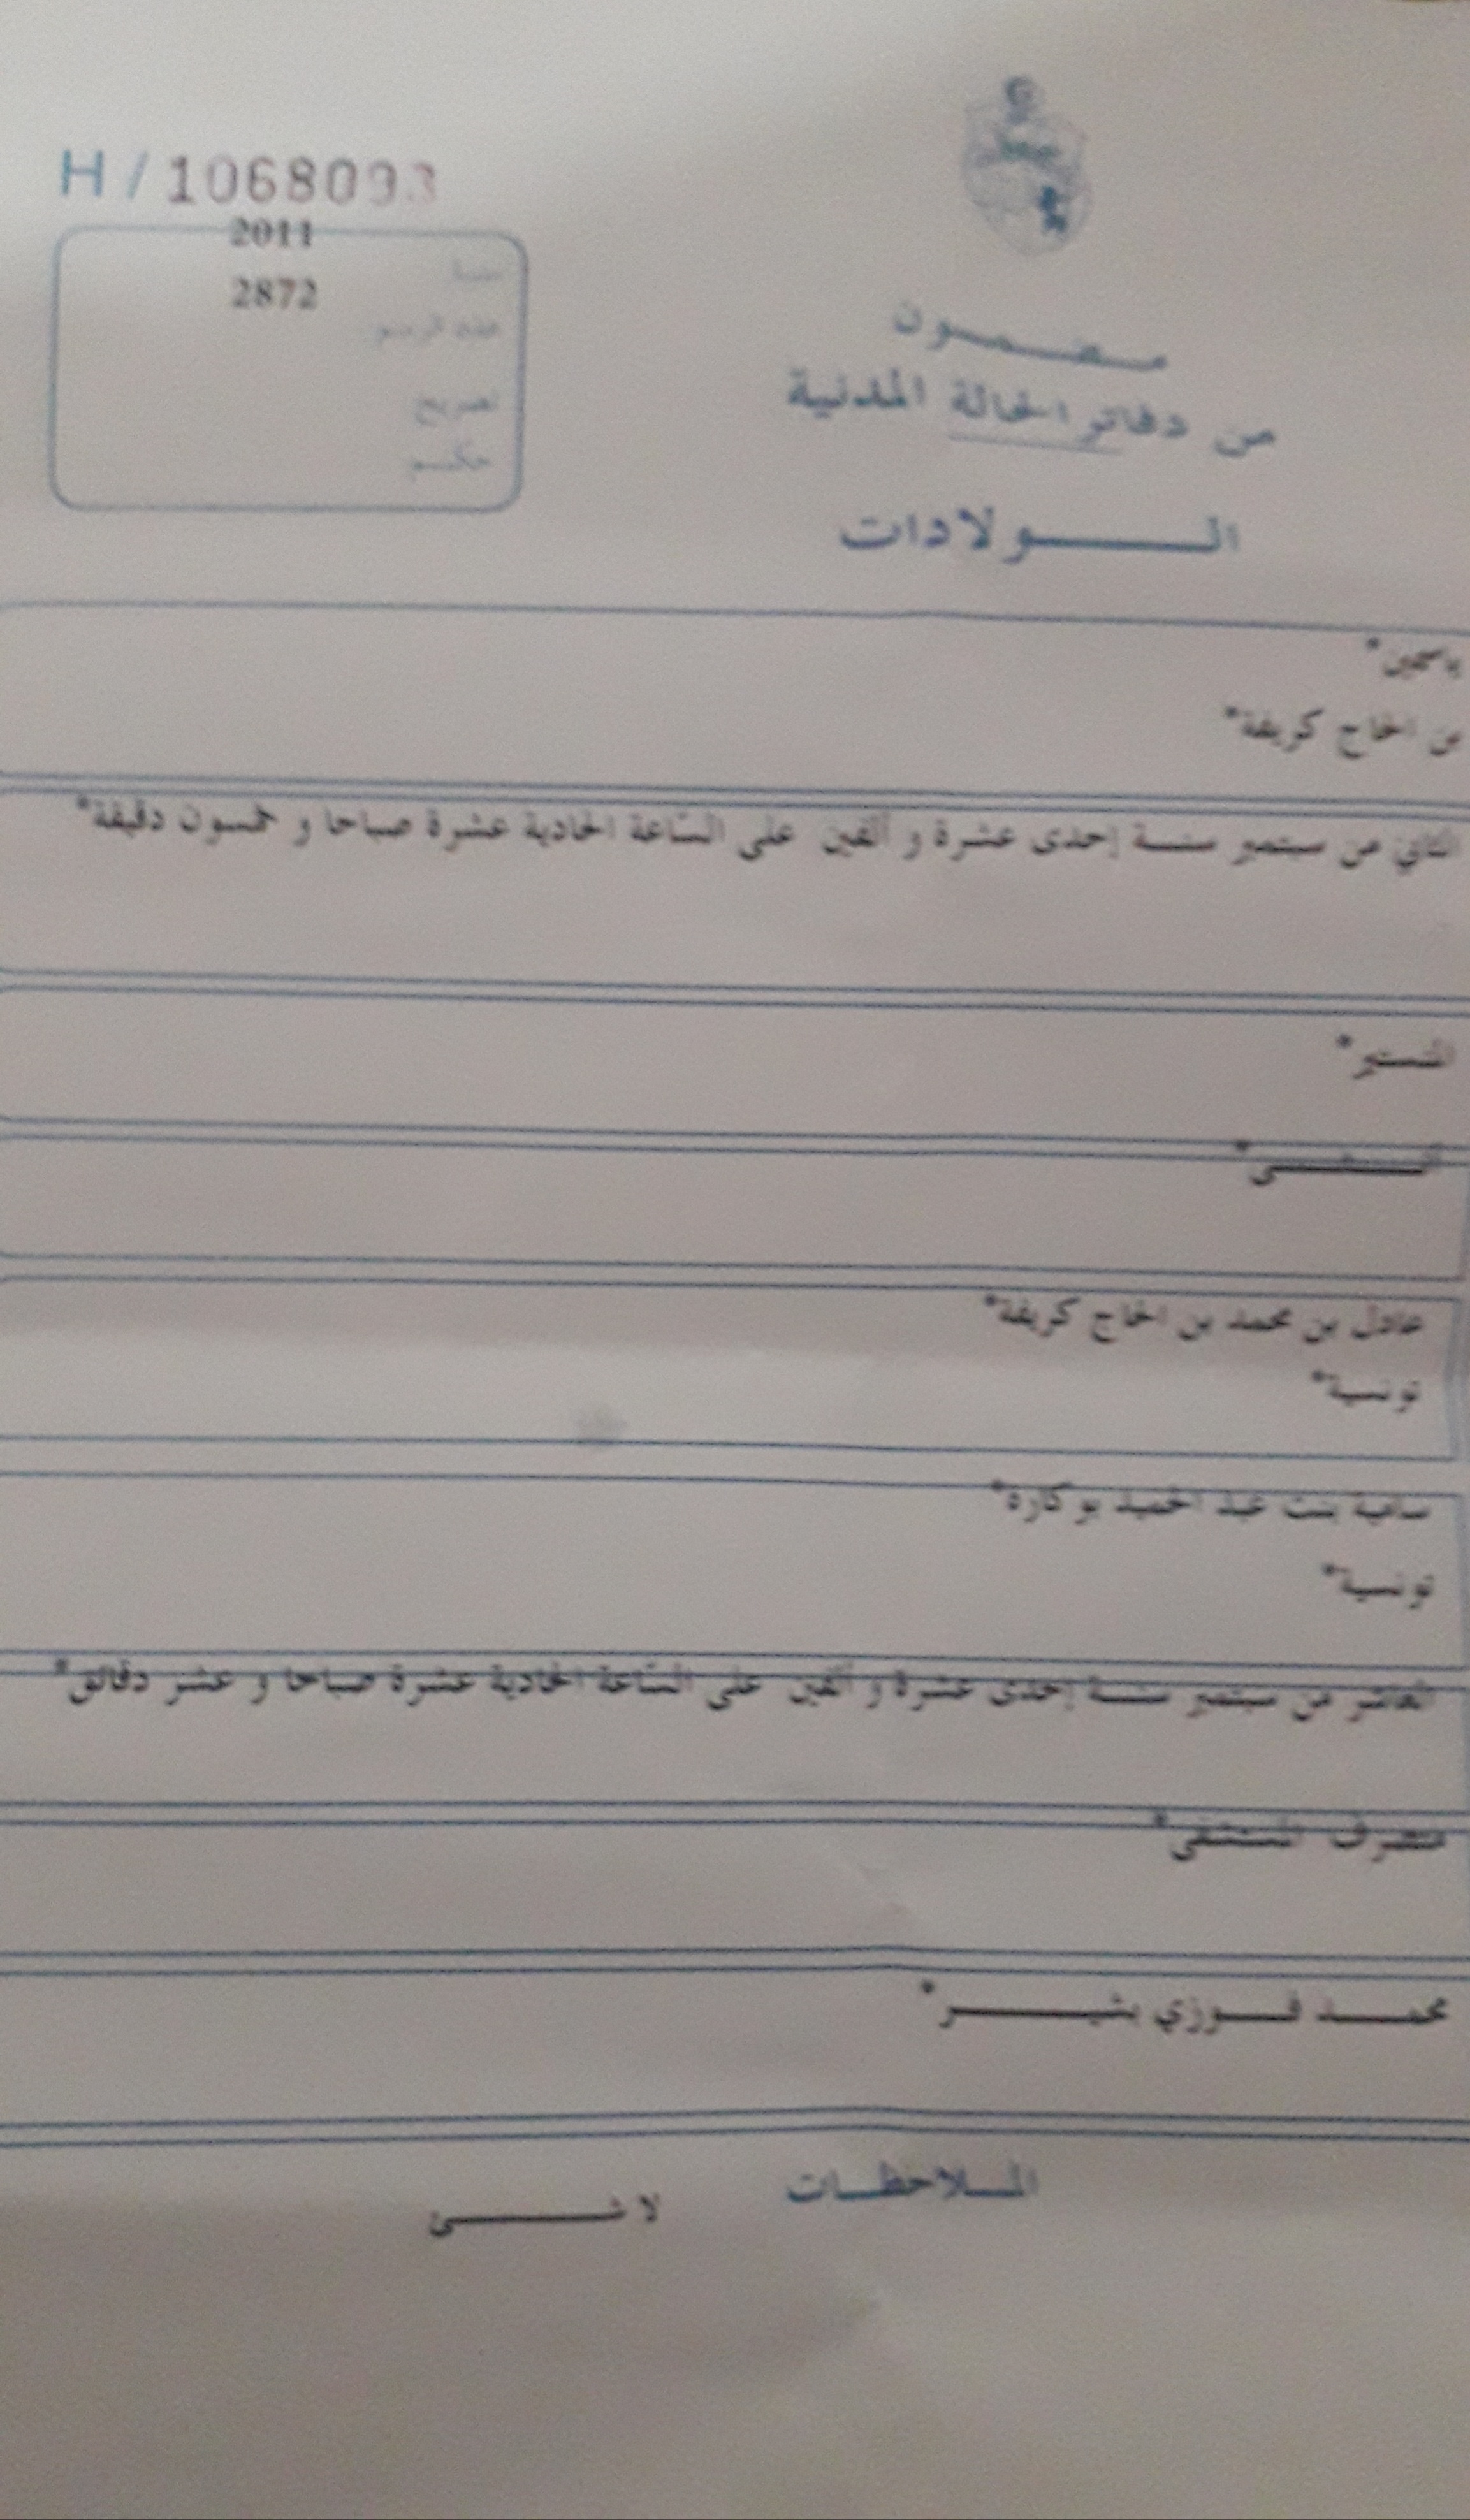 H / 1068093
2011
سنة
2872
عدد الرسم
تصريح
حكم
مضمون
من دفاتر الحالة المدنية
الولادات
ياسمين*
بن الحاج كريفة*
الثاني من سبتمبر سنة إحدى عشرة و ألفين على الساعة الحادية عشرة صباحا و خمسون دقيقة*
المنستير*
أنثى*
عادل بن محمد بن الحاج كريفة*
تونسية*
سامية بنت عبد الحميد بوكاره*
تونسية*
العاشر من سبتمبر سنة إحدى عشرة و ألفين على الساعة الحادية عشرة صباحا و عشر دقائق*
متصرف المستشفى*
محمد فوزي بشير*
الملاحظات
لا شئ